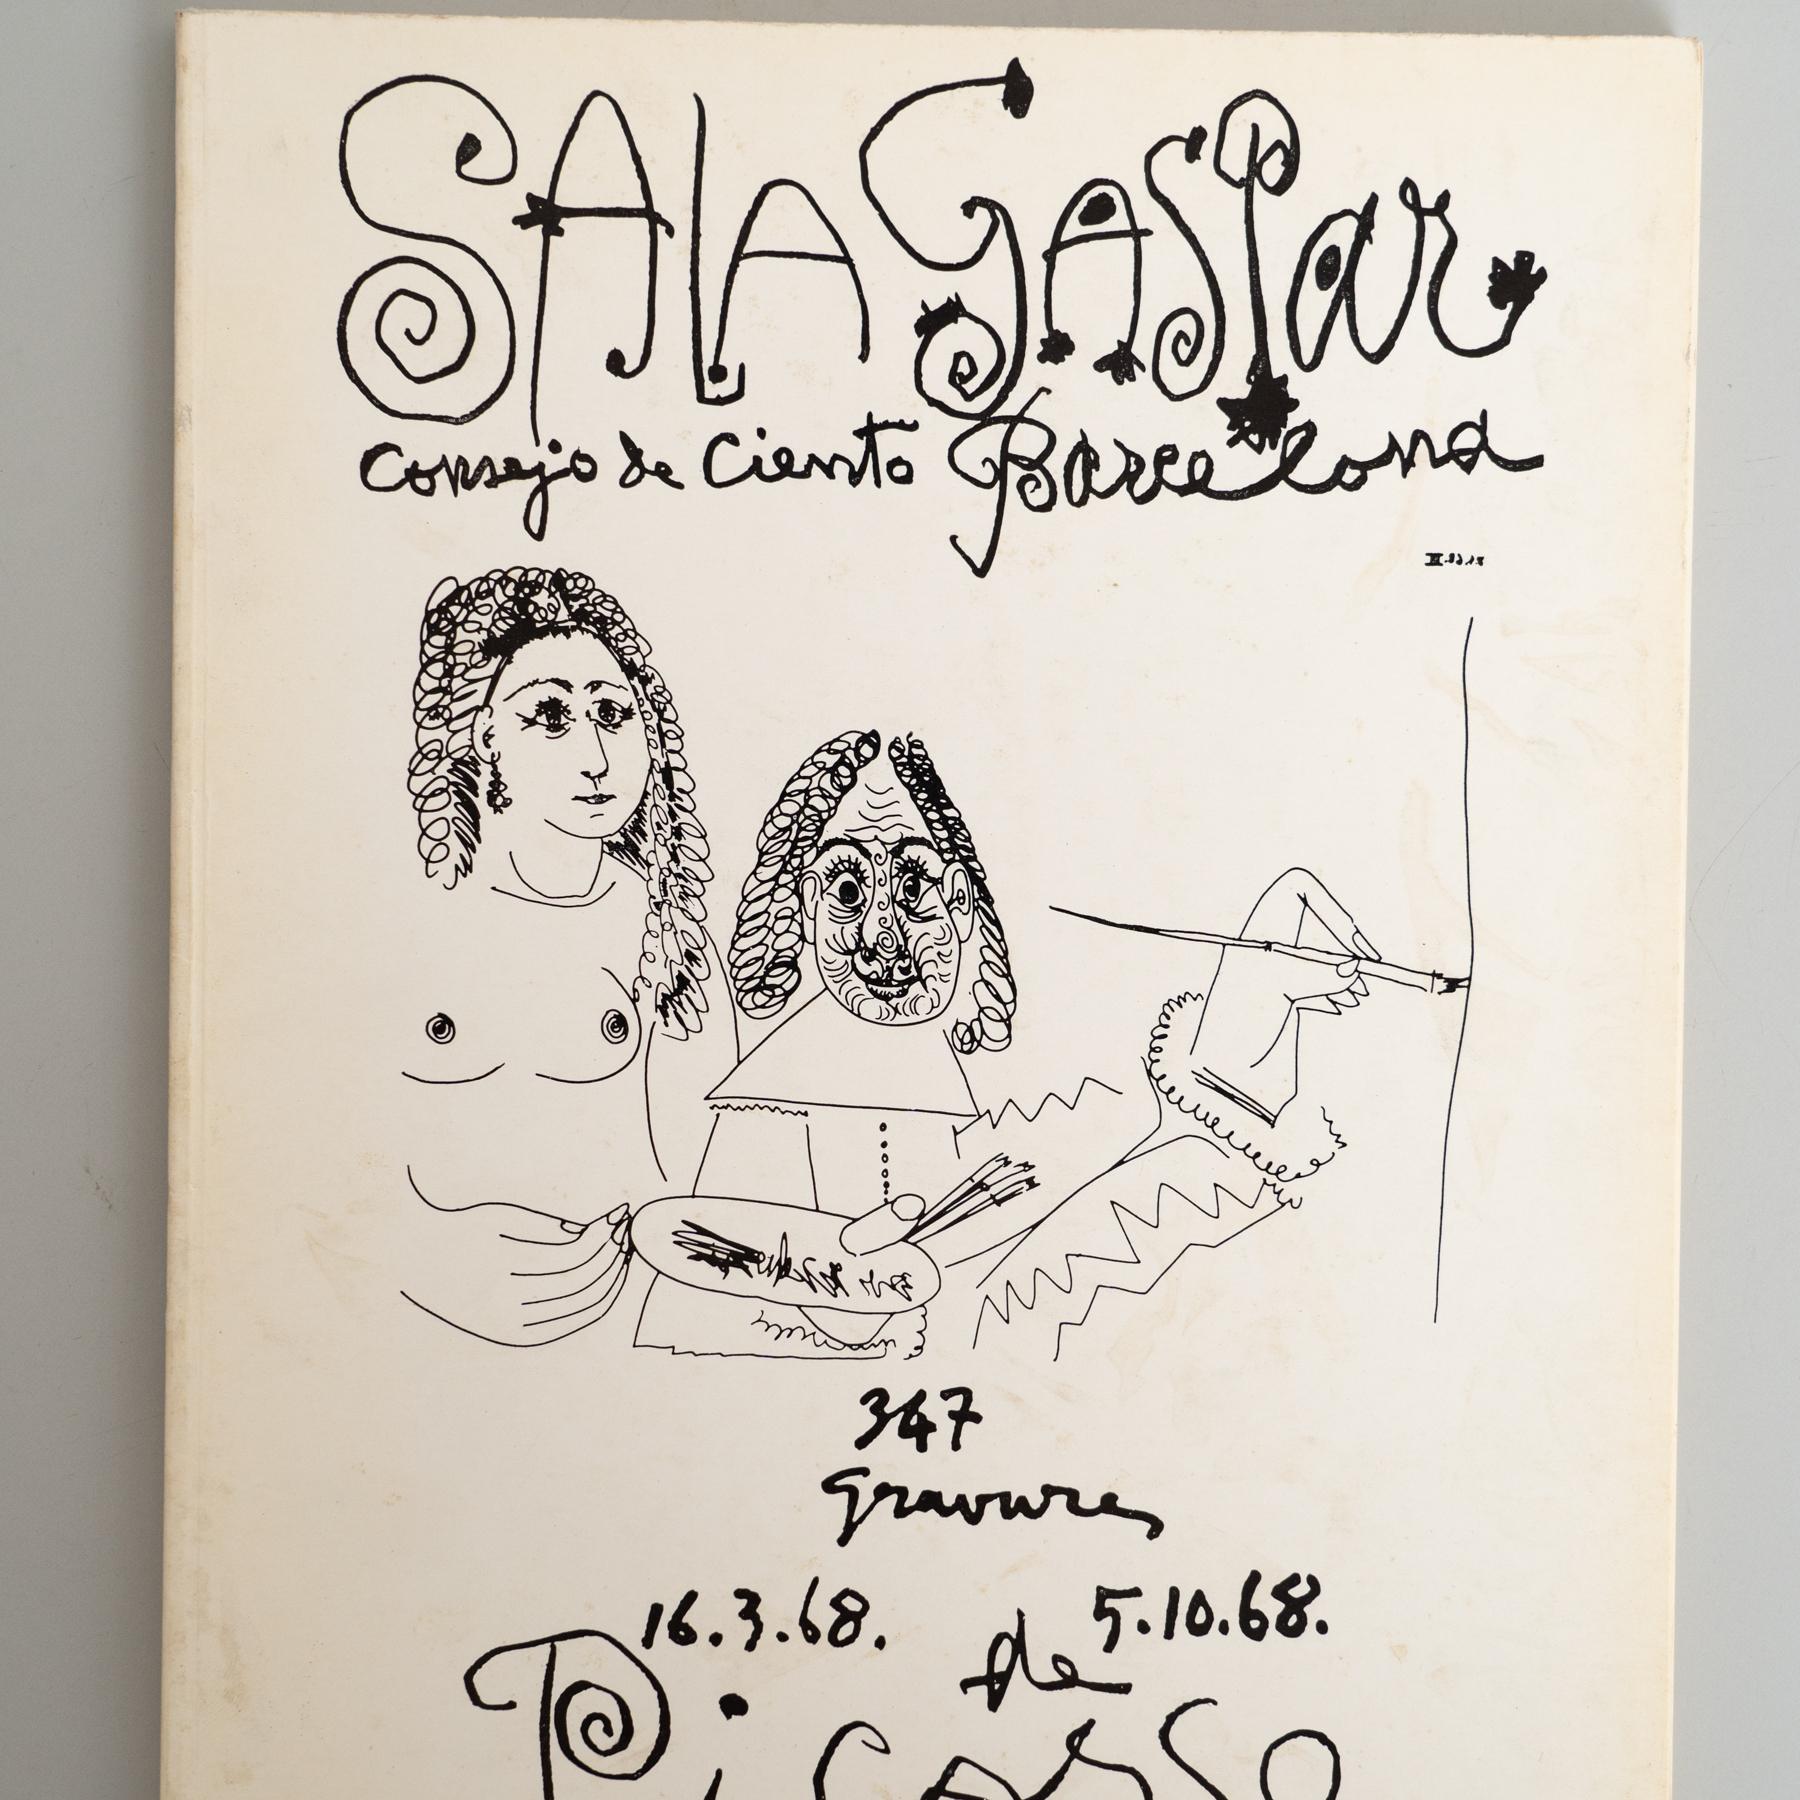 SALA GASPar
Consejo de Ciento Barcelona
347
gravures
16.3.68. 5.10.68.
de
Picasso